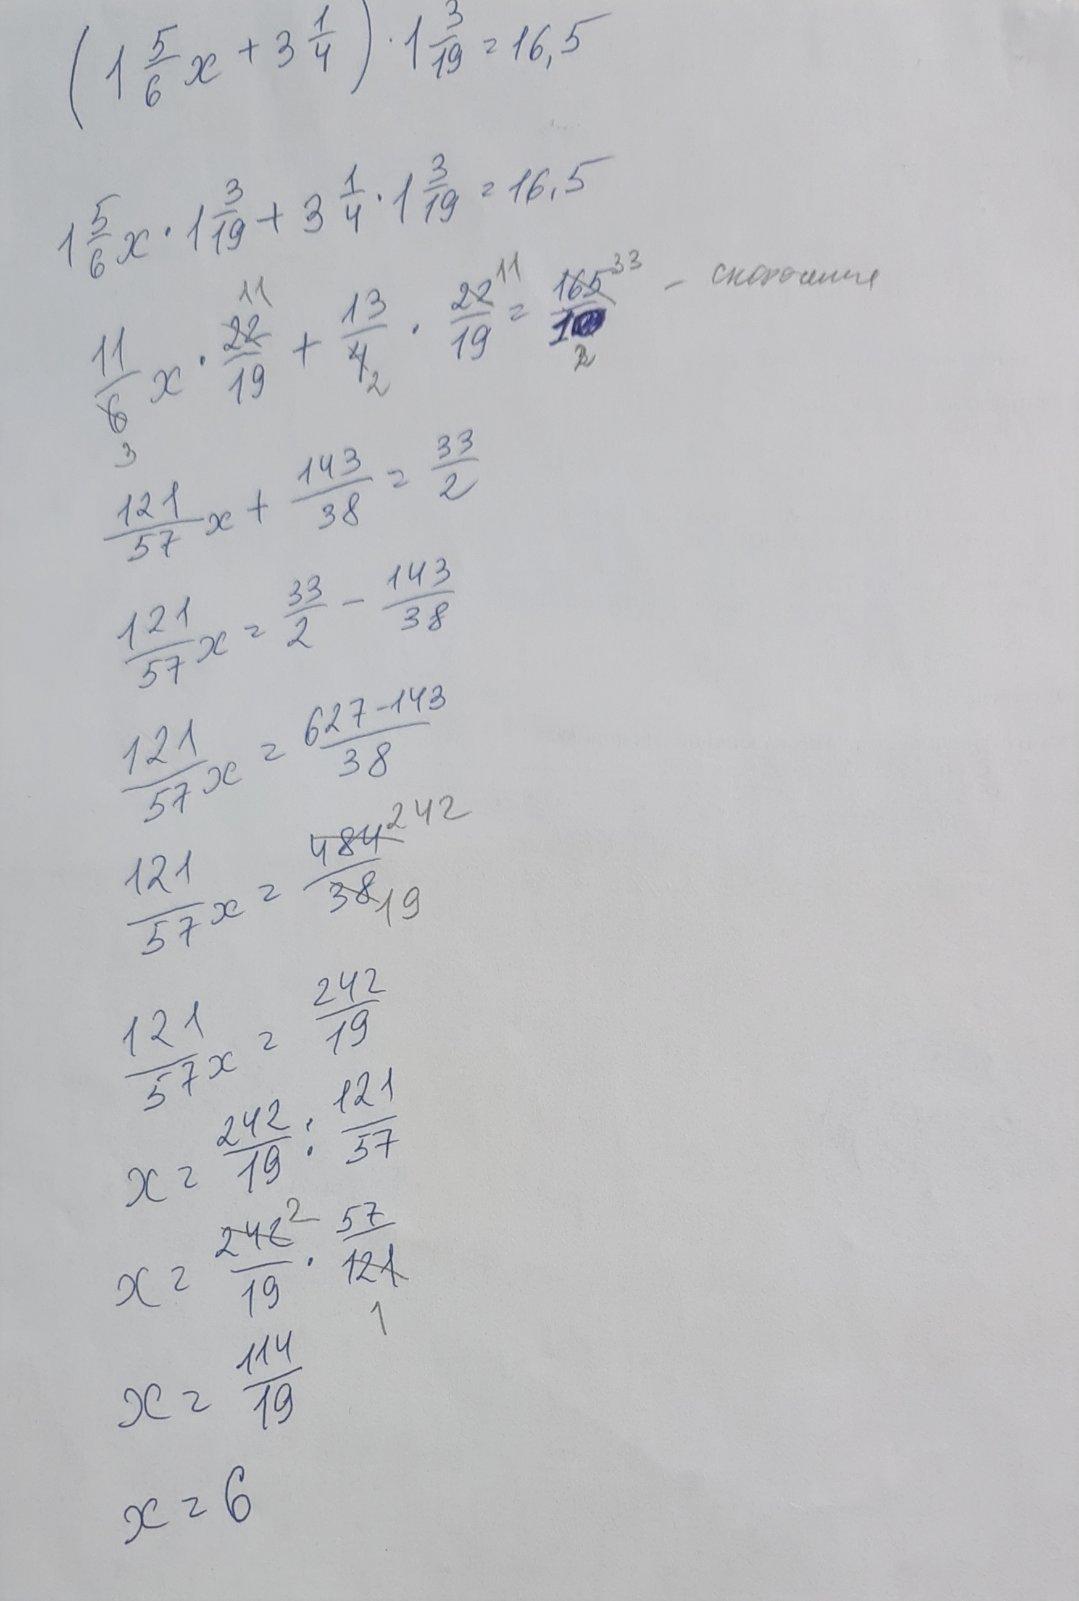 (1 5/6 x + 3 1/4) · 1 3/19 = 16,5
1 5/6 x · 1 3/19 + 3 1/4 · 1 3/19 = 16,5
11/6 3 x · 22 11/19 + 13/4 2 · 22 11/19 = 165 33/10 2 -
121/57 x + 143/38 = 33/2
121/57 x = 33/2 - 143/38
121/57 x = 627-143/38
121/57 x = 484 242/38 19
121/57 x = 242/19
x = 242/19 : 121/57
x = 242 2/19 · 57/121 1
x = 114/19
x = 6